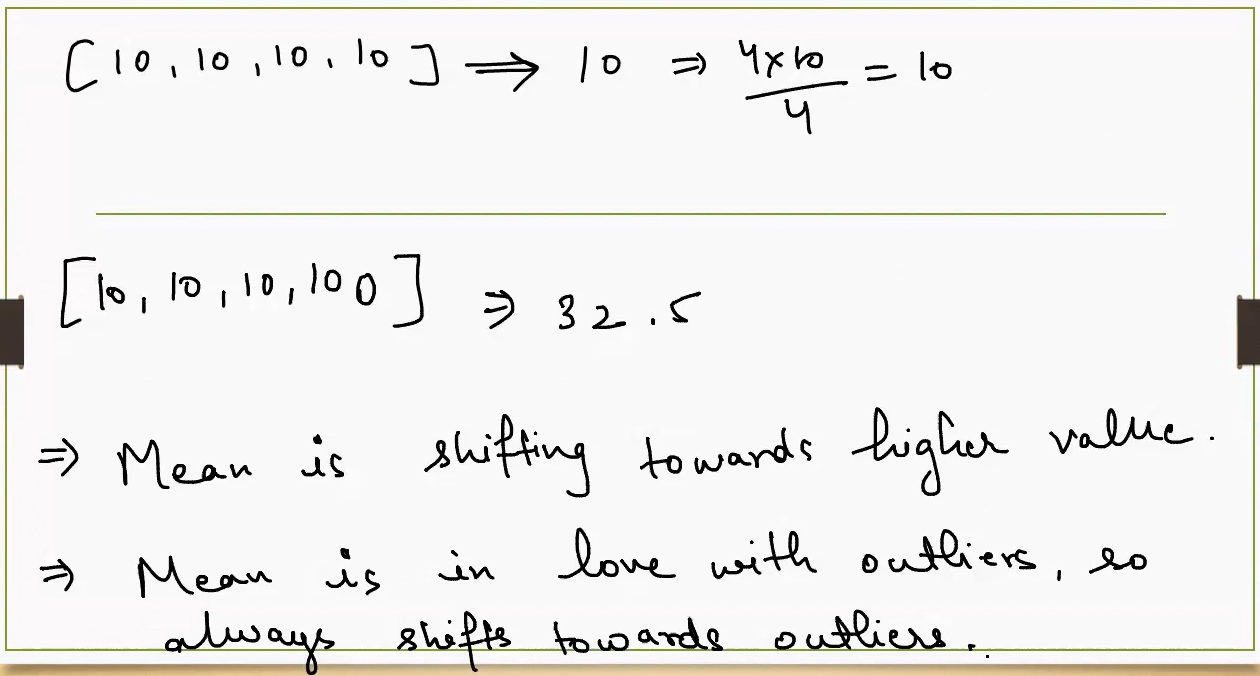 [10, 10, 10, 10] ⟹ 10 ⇒ 4×10/4 = 10
[10, 10, 10, 100] ⇒ 32.5
⇒ Mean is shifting towards higher value.
⇒ Mean is in love with outliers, so
always shifts towards outliers..